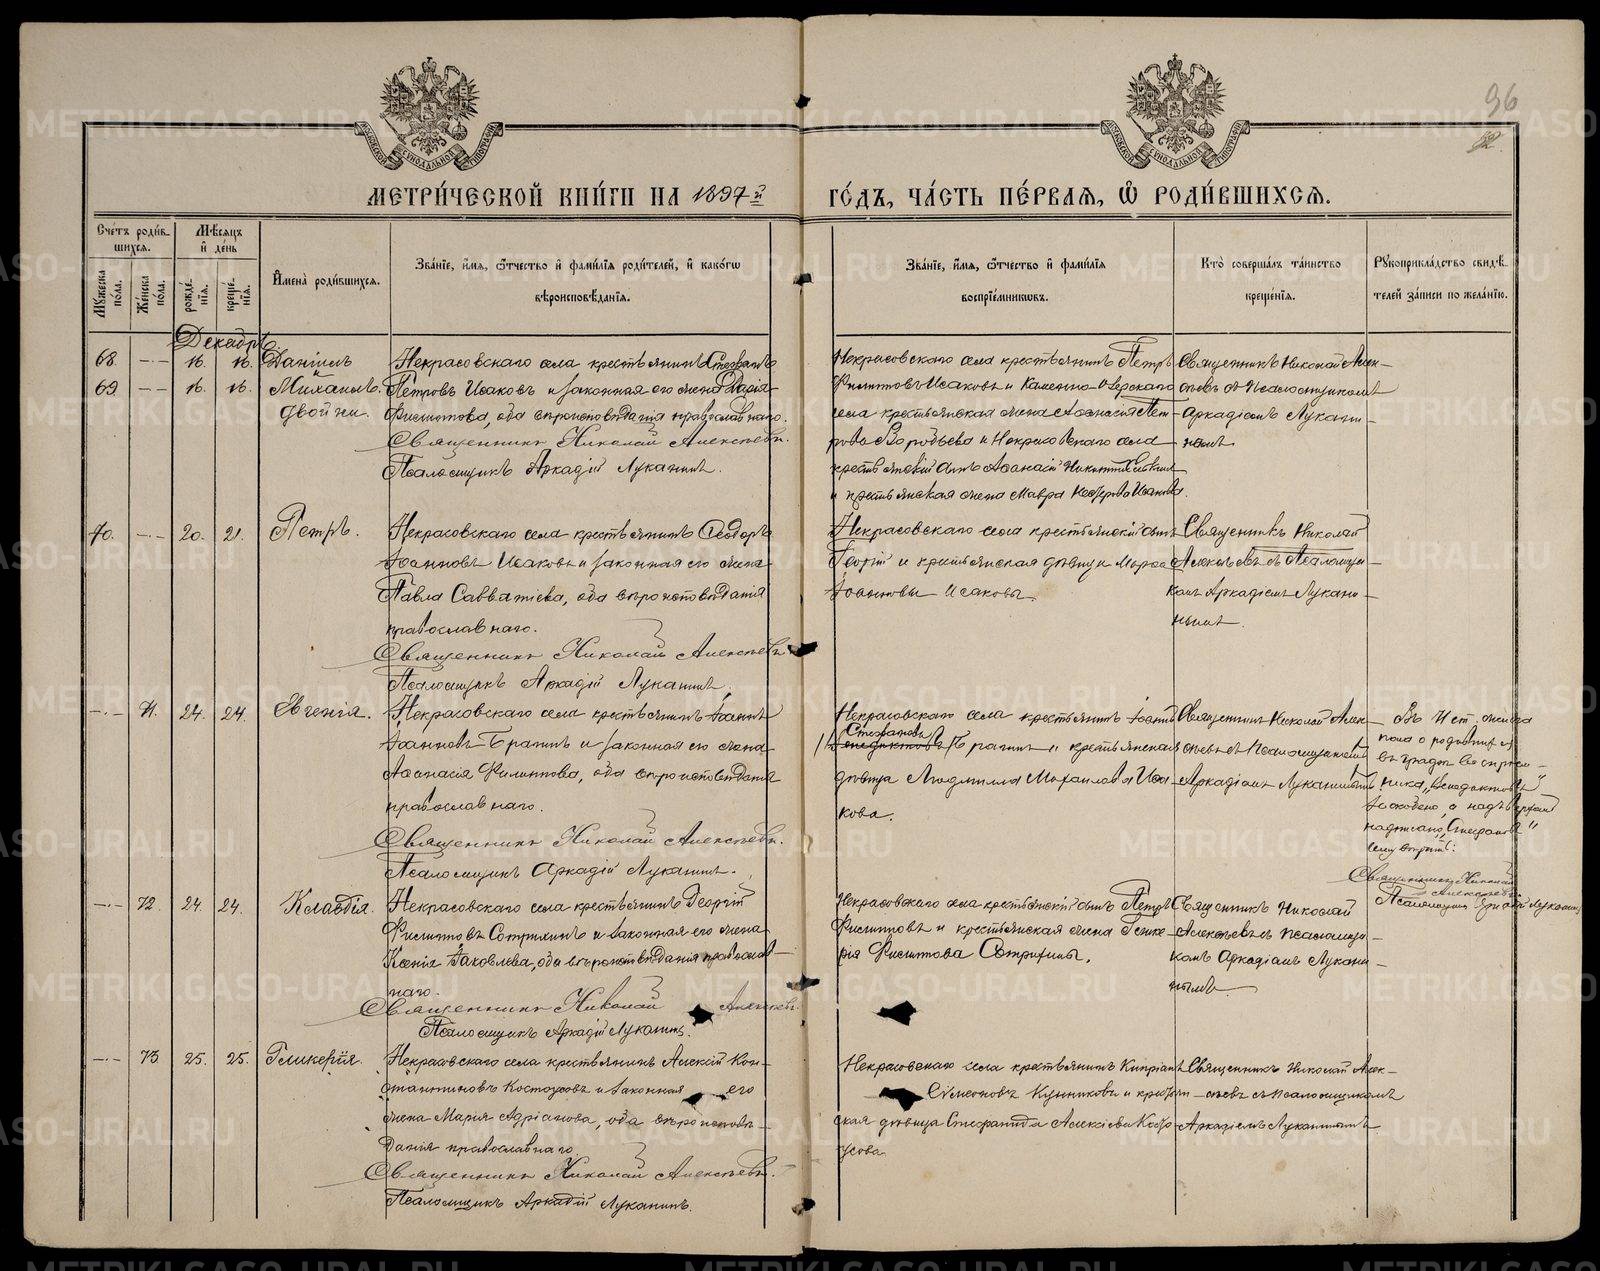 96
МЕТРИ́ЧЕСКОЙ КНИ́ГИ НА 1897й
ГО́ДЪ, ЧА́СТЬ ПЕ́РВАѦ, Ѽ РОДИ́ВШИХСѦ.
Сче́тъ роди́в-
шихсѧ.
Мꙋжеска по́ла.
Же́нска по́ла.
Мѣ́сѧцъ
и҆ де́нь
рожде́-
нїѧ.
креще́-
нїѧ.
И҆мена̀ роди́вшихсѧ.
Зва́нїе, и҆́мѧ, ѻ҆́тчество и҆ фами́лїѧ роди́телей, и҆ како́гѡ
вѣроисповѣ́данїѧ.
Зва́нїе, и҆́мѧ, ѻ҆́тчество и҆ фами́лїѧ
воспрїе́мникѡвъ.
Кто̀ соверша́лъ та́инство
креще́нїѧ.
Рꙋкоприкла́дство свидѣ́-
телей за́писи по жела́нїю.
Декабрь
68. 16. 16. Даніилъ
69 16. 16. Михаилъ.
двойни.
Некрасовскаго села крестьянинъ Стефанъ
Петровъ Исаковъ и законная его жена Дарія
Филиппова, оба вѣроисповѣданія православнаго.
Священникъ Николай Алексѣевъ.
Псаломщикъ Аркадій Луканинъ.
Некрасовскаго села крестьянинъ Петръ
Филипповъ Исаковъ и Каменно-Озерскаго
села крестьянская жена Аѳанасія Пет-
рова Воробьева и Некрасовскаго села
крестьянскій сынъ Аѳанасій Никитинъ
и крестьянская жена Мавра Исакова.
Священникъ Николай Алек-
сѣевъ съ Псаломщикомъ
Аркадіемъ Лукани-
нымъ
70. 20. 21. Петръ.
Некрасовскаго села крестьянинъ Ѳеодоръ
Іоанновъ Исаковъ и законная его жена
Павла Савватіева, оба вѣроисповѣданія
православнаго.
Священникъ Николай Алексѣевъ
Псаломщикъ Аркадій Луканинъ.
Некрасовскаго села крестьянскій сынъ
Георгій и крестьянская дѣвица Марѳа
Іоанновы Исаковы.
Священникъ Николай
Алексѣевъ съ Псаломщи-
комъ Аркадіемъ Лукани-
нымъ.
71. 24. 24. Евгенія.
Некрасовскаго села крестьянинъ Іоаннъ
Іоанновъ Брагинъ и законная его жена
Аѳанасія Филиппова, оба вѣроисповѣданія
православнаго.
Священникъ Николай Алексѣевъ.
Псаломщикъ Аркадій Луканинъ.
Некрасовскаго села крестьянинъ Іоаннъ
Стефановъ
Венедиктовъ Брагинъ и крестьянская
дѣвица Людмилла Михаилова Иса-
кова.
Священникъ Николай Алек-
сѣевъ съ Псаломщикомъ
Аркадіемъ Луканинымъ
"Венедиктовъ"
заскоблено, а надъ
надписано "Стефановъ"
Священникъ Николай
Алексѣевъ
Псаломщикъ Аркадій Луканинъ
72. 24. 24. Клавдія.
Некрасовскаго села крестьянинъ Георгій
Филипповъ Сотрихинъ и законная его жена
Ксенія Іаковлева, оба вѣроисповѣданія православ-
наго.
Священникъ Николай Алексѣевъ
Псаломщикъ Аркадій Луканинъ.
Некрасовскаго села крестьянскій сынъ Петръ
Филипповъ и крестьянская жена Глике-
рія Филиппова Сотрихины.
Священникъ Николай
Алексѣевъ съ псаломщи-
комъ Аркадіемъ Лукани-
нымъ
73 25. 25. Гликерія.
Некрасовскаго села крестьянинъ Алексій Кон-
стантиновъ Костоусовъ и законная его
жена Марія Адріанова, оба вѣроисповѣ-
данія православнаго
Священникъ Николай Алексѣевъ.
Псаломщикъ Аркадій Луканинъ.
Некрасовскаго села крестьянинъ Кипріанъ
Симеоновъ Кунниковъ и крестьян-
ская дѣвица Стефанида Алексіева Косто-
усова
Священникъ Николай Алек-
сѣевъ съ псаломщикомъ
Аркадіемъ Луканинымъ
METRIKI.GASO-URAL.RU